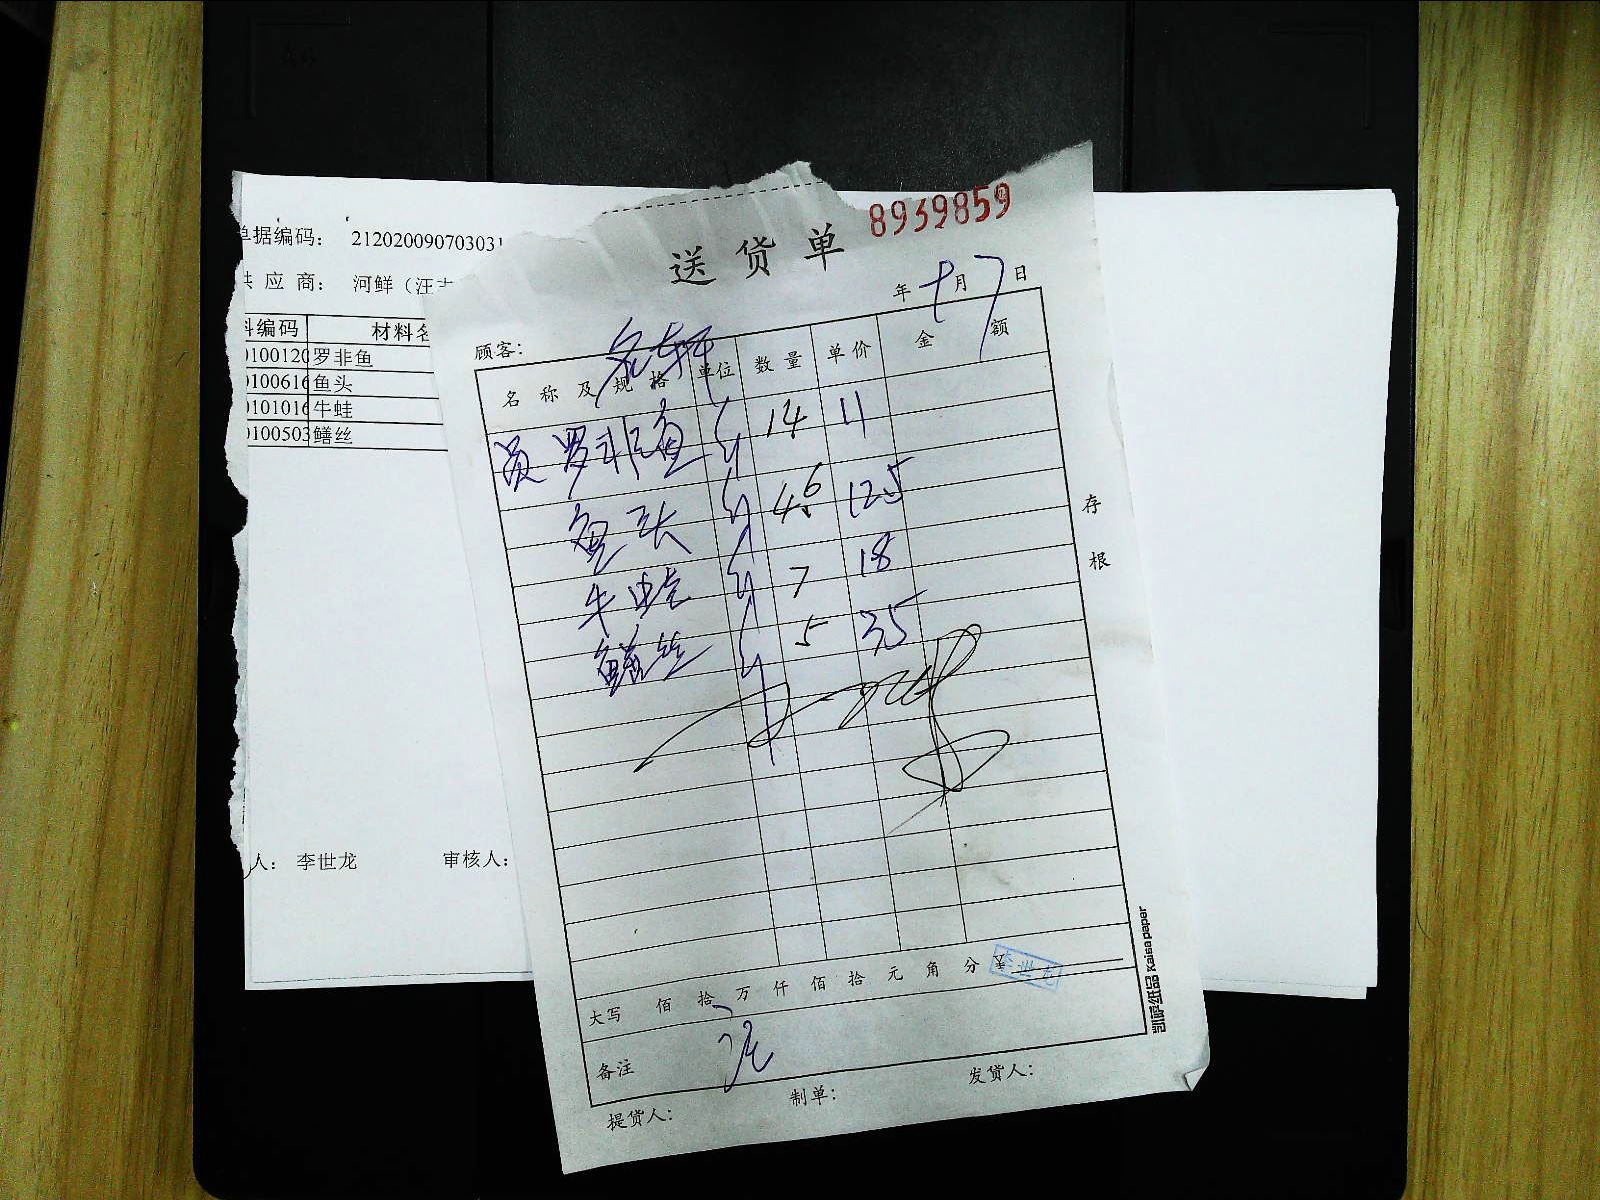 单据编码： 212020090703031
供 应 商： 河鲜（汪
料编码 材料名
0100120 罗非鱼
0100616 鱼头
0101016 牛蛙
0100503 鳝丝
人： 李世龙 审核人：
8939859
送货单
年 十 月 7 日
顾客：
名称及规格 单位 数量 单价 金额
罗非鱼 斤 14 11
鱼头 斤 4.6 12.5
牛蛙 斤 7 18
鳝丝 斤 5 35
存根
大写 佰 拾 万 仟 佰 拾 元 角 分 ¥
李世龙
备注 汪
提货人： 制单： 发货人：
凯萨纸品 Kaisa paper